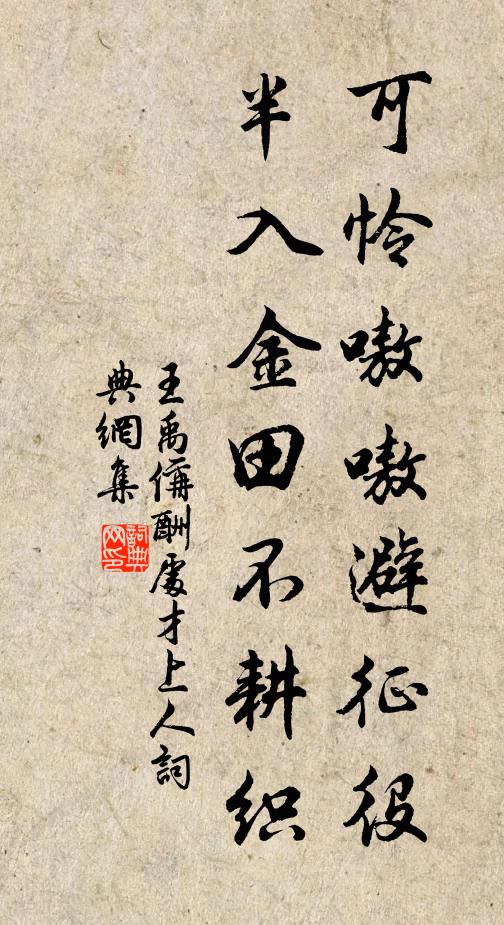 可怜嗷嗷避征役
半入金田不耕织
王禹偁酬處才上人詞
典網集
詞典网印